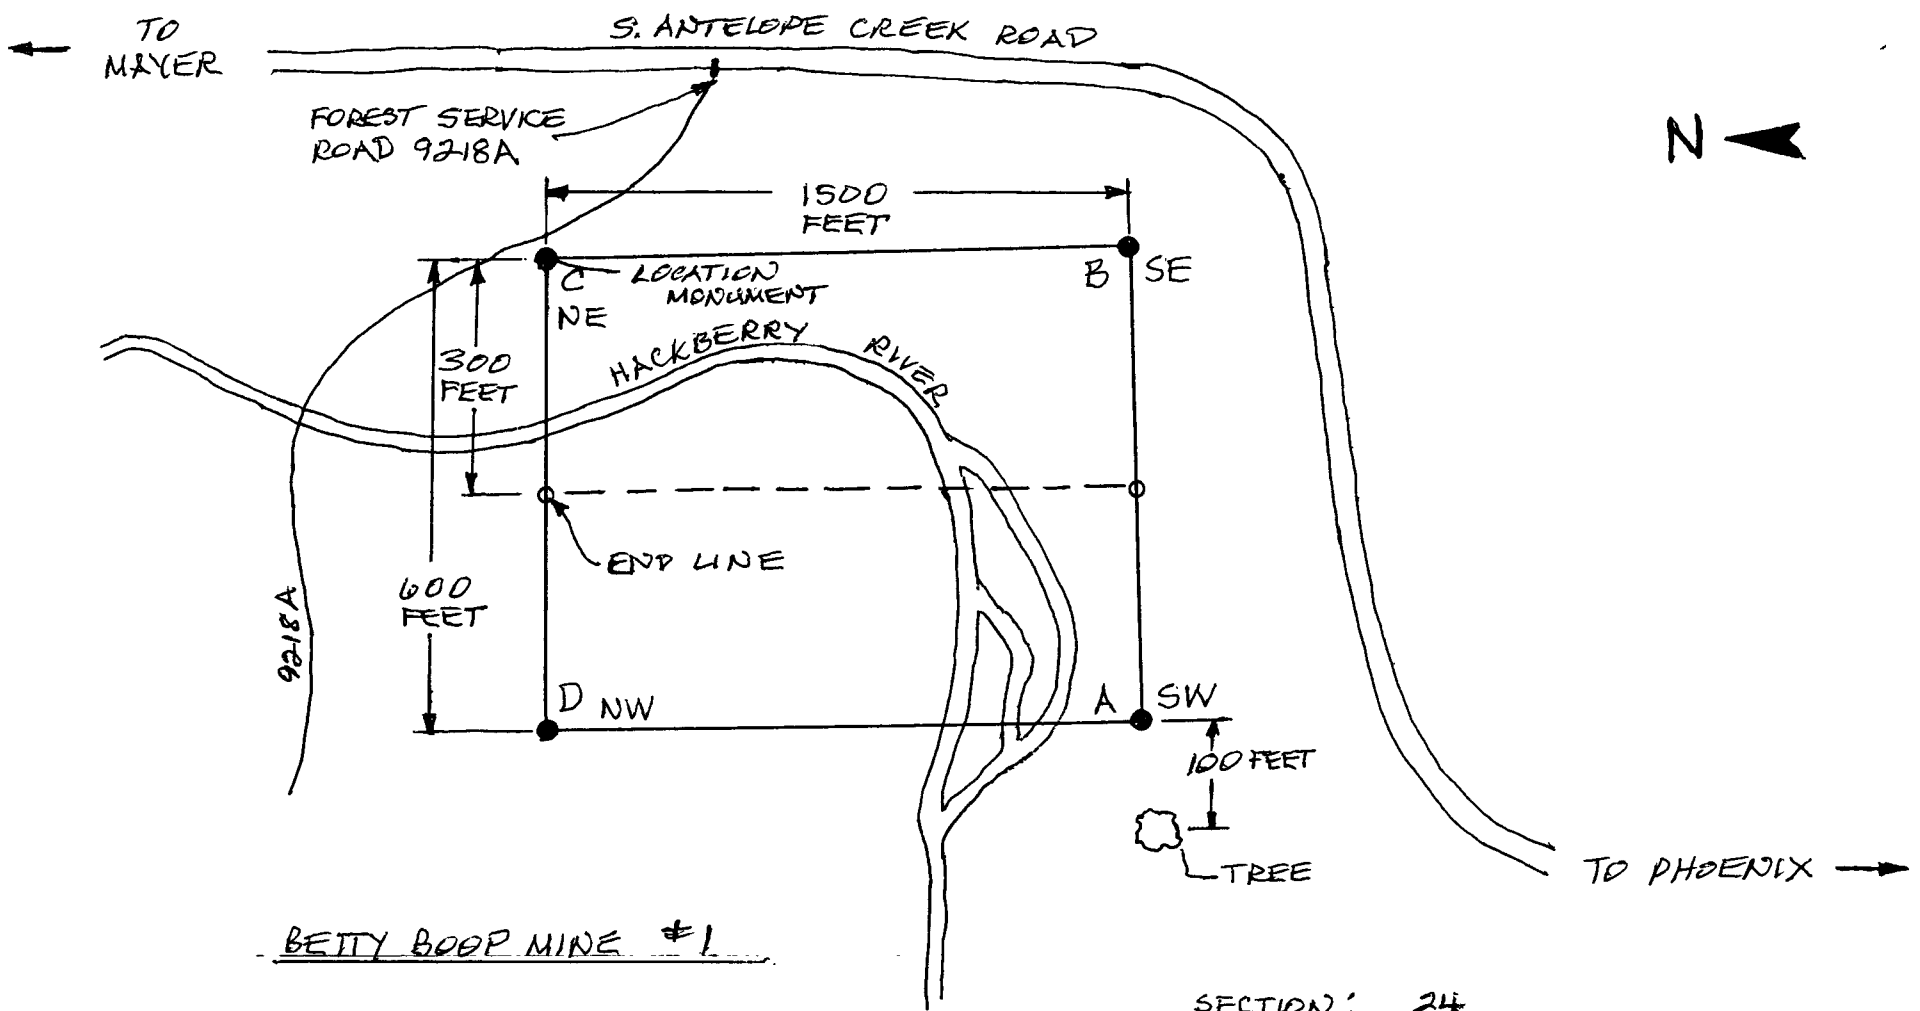 TO
MAYER
S. ANTELOPE CREEK ROAD
FOREST SERVICE
ROAD 9218A
N
1500
FEET
C
LOCATION
MONUMENT
NE
B
SE
HACKBERRY RIVER
300
FEET
END LINE
600
FEET
9218A
D
NW
A
SW
100 FEET
TREE
TO PHOENIX
BETTY BOOP MINE #1
SECTION: 24